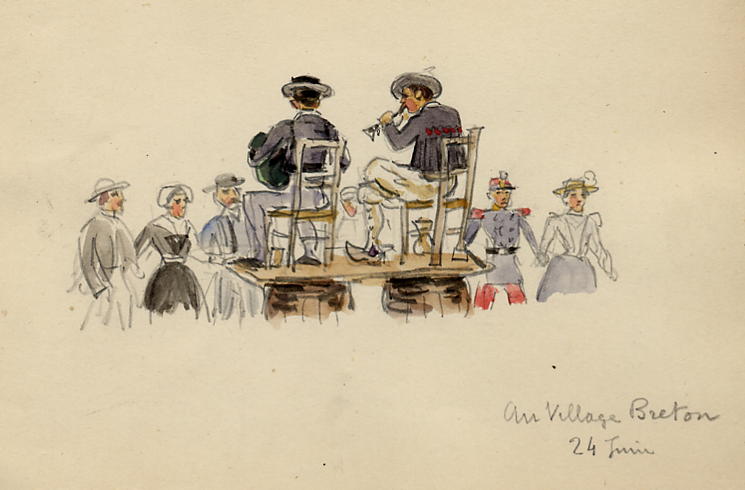 Au Village Breton
24 Juin